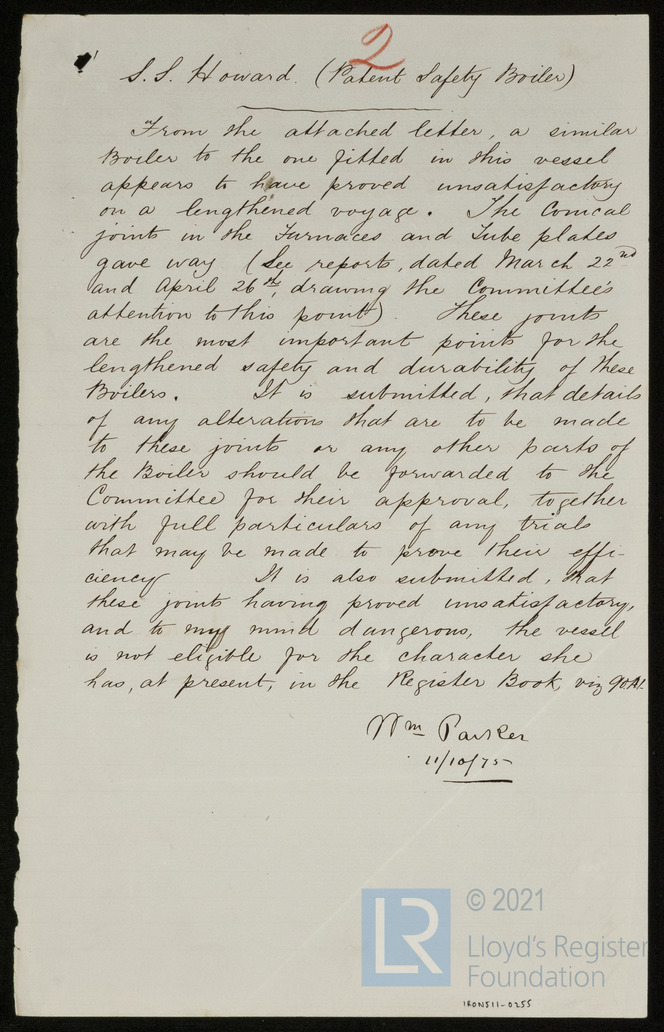 2
S.S. Howard. (Patent Safety Boiler)
From the attached letter, a similar
Boiler to the one fitted in this vessel
appears to have proved unsatisfactory
on a lengthened voyage. The Conical
joints in the Furnaces and Tube plates
gave way (See reports, dated March 22nd
and April 26th, drawing the Committee's
attention to this point). These joints
are the most important points for the
lengthened safety and durability of these
Boilers. It is submitted, that details
of any alterations that are to be made
to these joints or any other parts of
the Boiler should be forwarded to the
Committee for their approval, together
with full particulars of any trials
that may be made to prove their effi-
ciency It is also submitted, that
these joints having proved unsatisfactory,
and to my mind dangerous, the vessel
is not eligible for the character she
has, at present, in the Register Book, viz 90A1.
Wm Parker
11/10/75
LR
© 2021
Lloyd's Register
Foundation
IRON511-0255